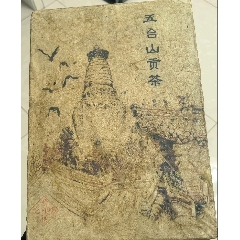 五台山贡茶